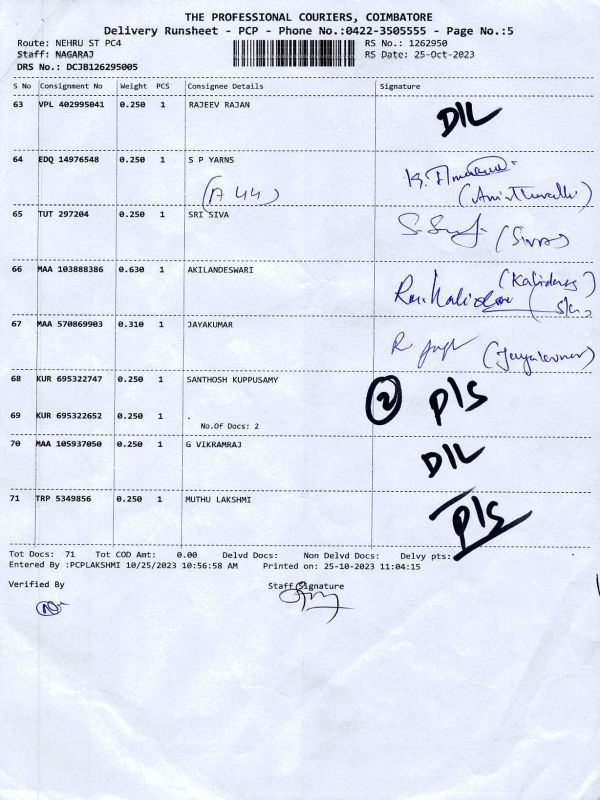 THE PROFESSIONAL COURIERS, COIMBATORE
Delivery Runsheet - PCP - Phone No.:0422-3505555 - Page No.:5
Route: NEHRU ST PC4 RS No.: 1262950
Staff: NAGARAJ RS Date: 25-Oct-2023
DRS No.: DCJB126295005
S No Consignment No Weight PCS Consignee Details Signature
63 VPL 402995041 0.250 1 RAJEEV RAJAN D/L
64 EDQ 14976548 0.250 1 S P YARNS
(A 44)
65 TUT 297204 0.250 1 SRI SIVA
66 MAA 103888386 0.630 1 AKILANDESWARI
67 MAA 570869903 0.310 1 JAYAKUMAR
68 KUR 695322747 0.250 1 SANTHOSH KUPPUSAMY 2 P/S
69 KUR 695322652 0.250 1 .
No.Of Docs: 2
70 MAA 105937050 0.250 1 G VIKRAMRAJ D/L
71 TRP 5349856 0.250 1 MUTHU LAKSHMI P/S
Tot Docs: 71 Tot COD Amt: 0.00 Delvd Docs: Non Delvd Docs: Delvy pts:
Entered By :PCPLAKSHMI 10/25/2023 10:56:58 AM Printed on: 25-10-2023 11:04:15
Verified By Staff Signature